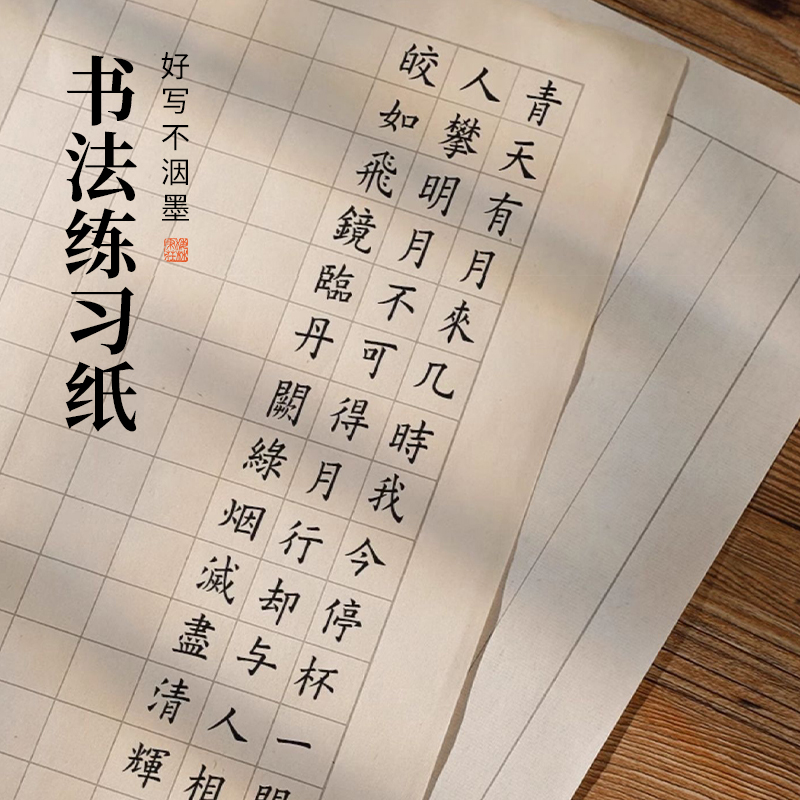 好写不洇墨
书法练习纸
青天有月來几時我今停杯一
人攀明月不可得月行却与人相
皎如飛鏡臨丹闕綠烟滅盡清輝